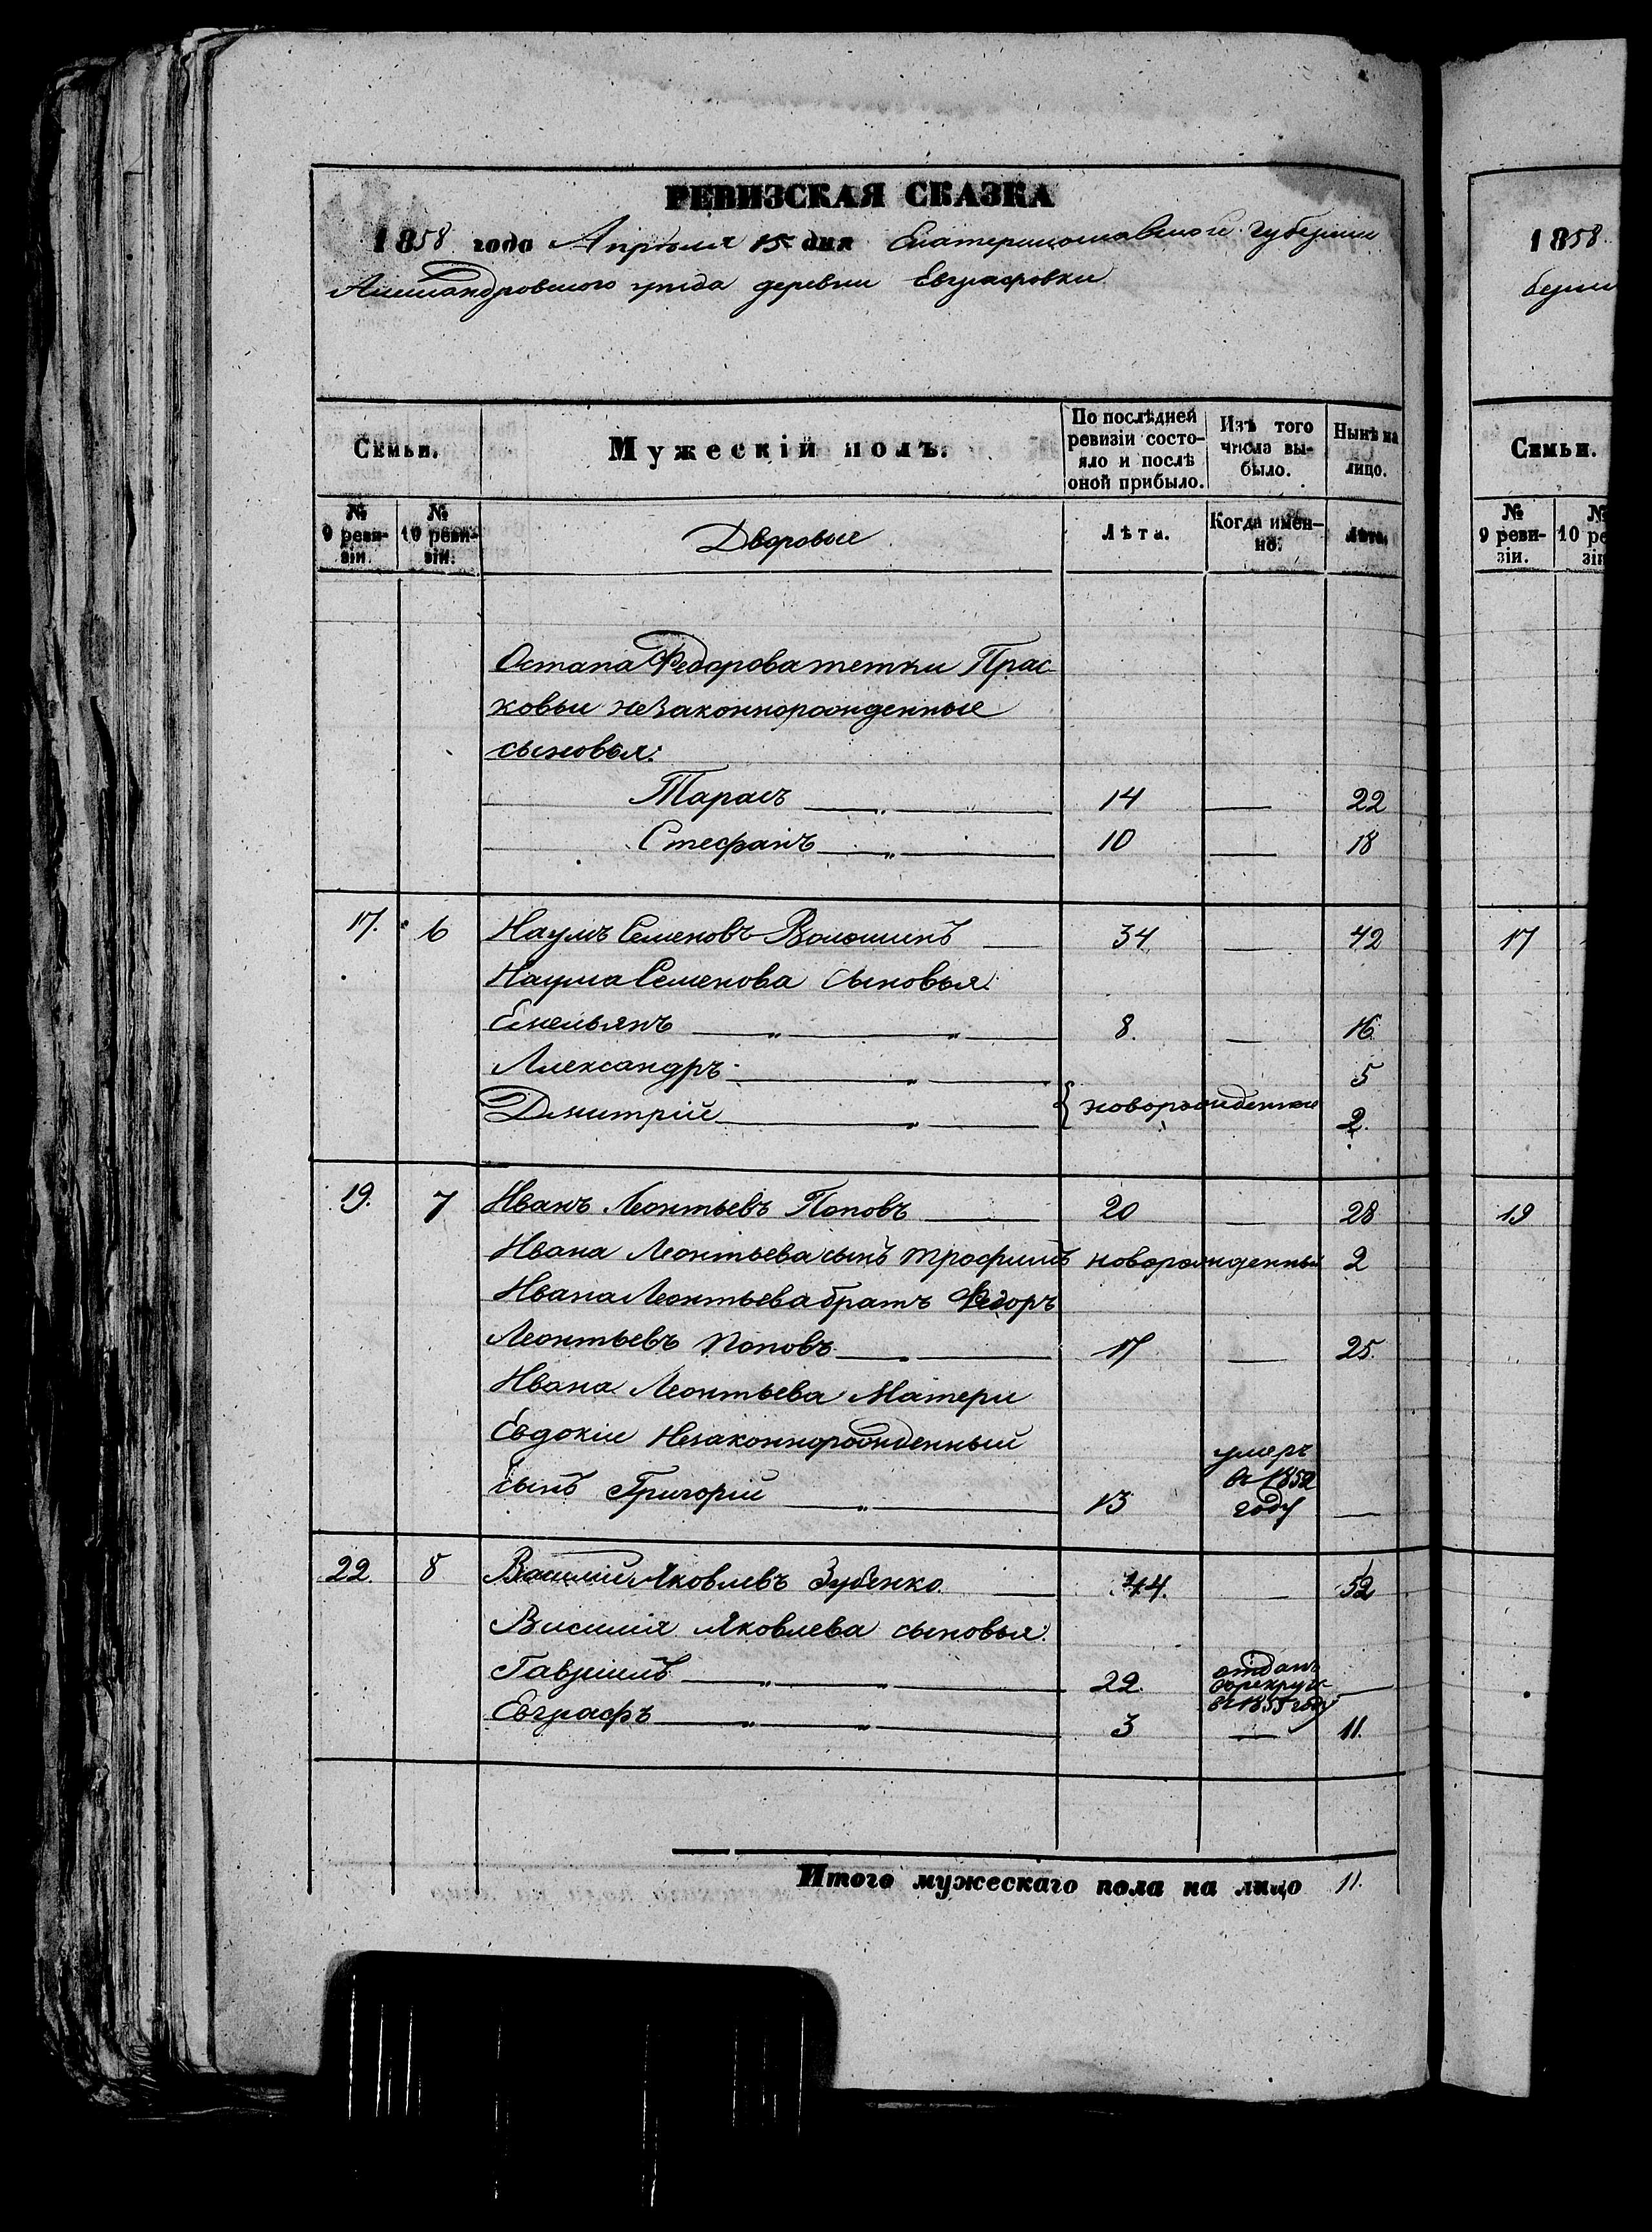 РЕВИЗСКАЯ СКАЗКА
1858 года Апреля 15 дня Екатеринославской губернии
Александровского уезда деревни Евграфовки
Семьи.
Мужескій полъ.
По послѣдней ревизіи состо-
яло и послѣ
оной прибыло.
Изъ того
числа вы-
было.
Нынѣ на
лицо.
№
9 реви-
зіи.
№
10 реви-
зіи.
Дворовые
Лѣта.
Когда имен-
но.
Лѣта.
Остапа Федорова тетки Прас-
ковьи незаконнорожденные
сыновья:
Тарасъ 14 — 22
Стефанъ 10 — 18
17. 6 Наумъ Семеновъ Волошинъ — 34 — 42
Наума Семенова сыновья:
Емельянъ 8. — 16.
Александръ 5
Дмитрій { новорожденные 2.
19. 7 Иванъ Леонтьевъ Поповъ 20 — 28
Ивана Леонтьева сынъ Трофимъ новорожденный 2
Ивана Леонтьева братъ Федоръ
Леонтьевъ Поповъ 17 — 25.
Ивана Леонтьева Матери
Евдокіи Незаконнорожденный
сынъ Григорій 13 умеръ
въ 1852
году —
22. 8 Василій Яковлевъ Зубенко 44. — 52
Василія Яковлева сыновья:
Гавріилъ 22. отданъ
в рекруты
въ 1855 году —
Евграфъ 3 — 11.
Итого мужескаго пола на лицо 11.
1858
Семьи.
№
9 реви-
зіи.
17
19